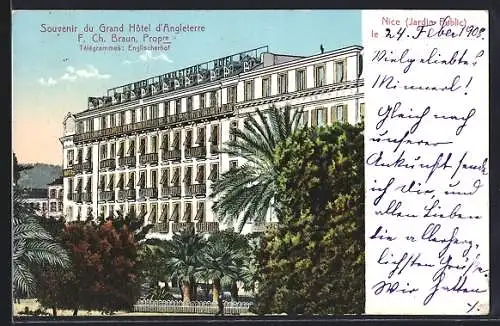 Souvenir du Grand Hôtel d'Angleterre
F. Ch. Braun, Propre
Télégrammes: Englischerhof
Nice (Jardin Public)
le 24. Feber 1908.
Vielgeliebte!
Mimerl!
Gleich nach
unserer
Ankunft sende
ich dir, und
allen Lieben
die allerherz-
lichsten Grüße
Wir hatten